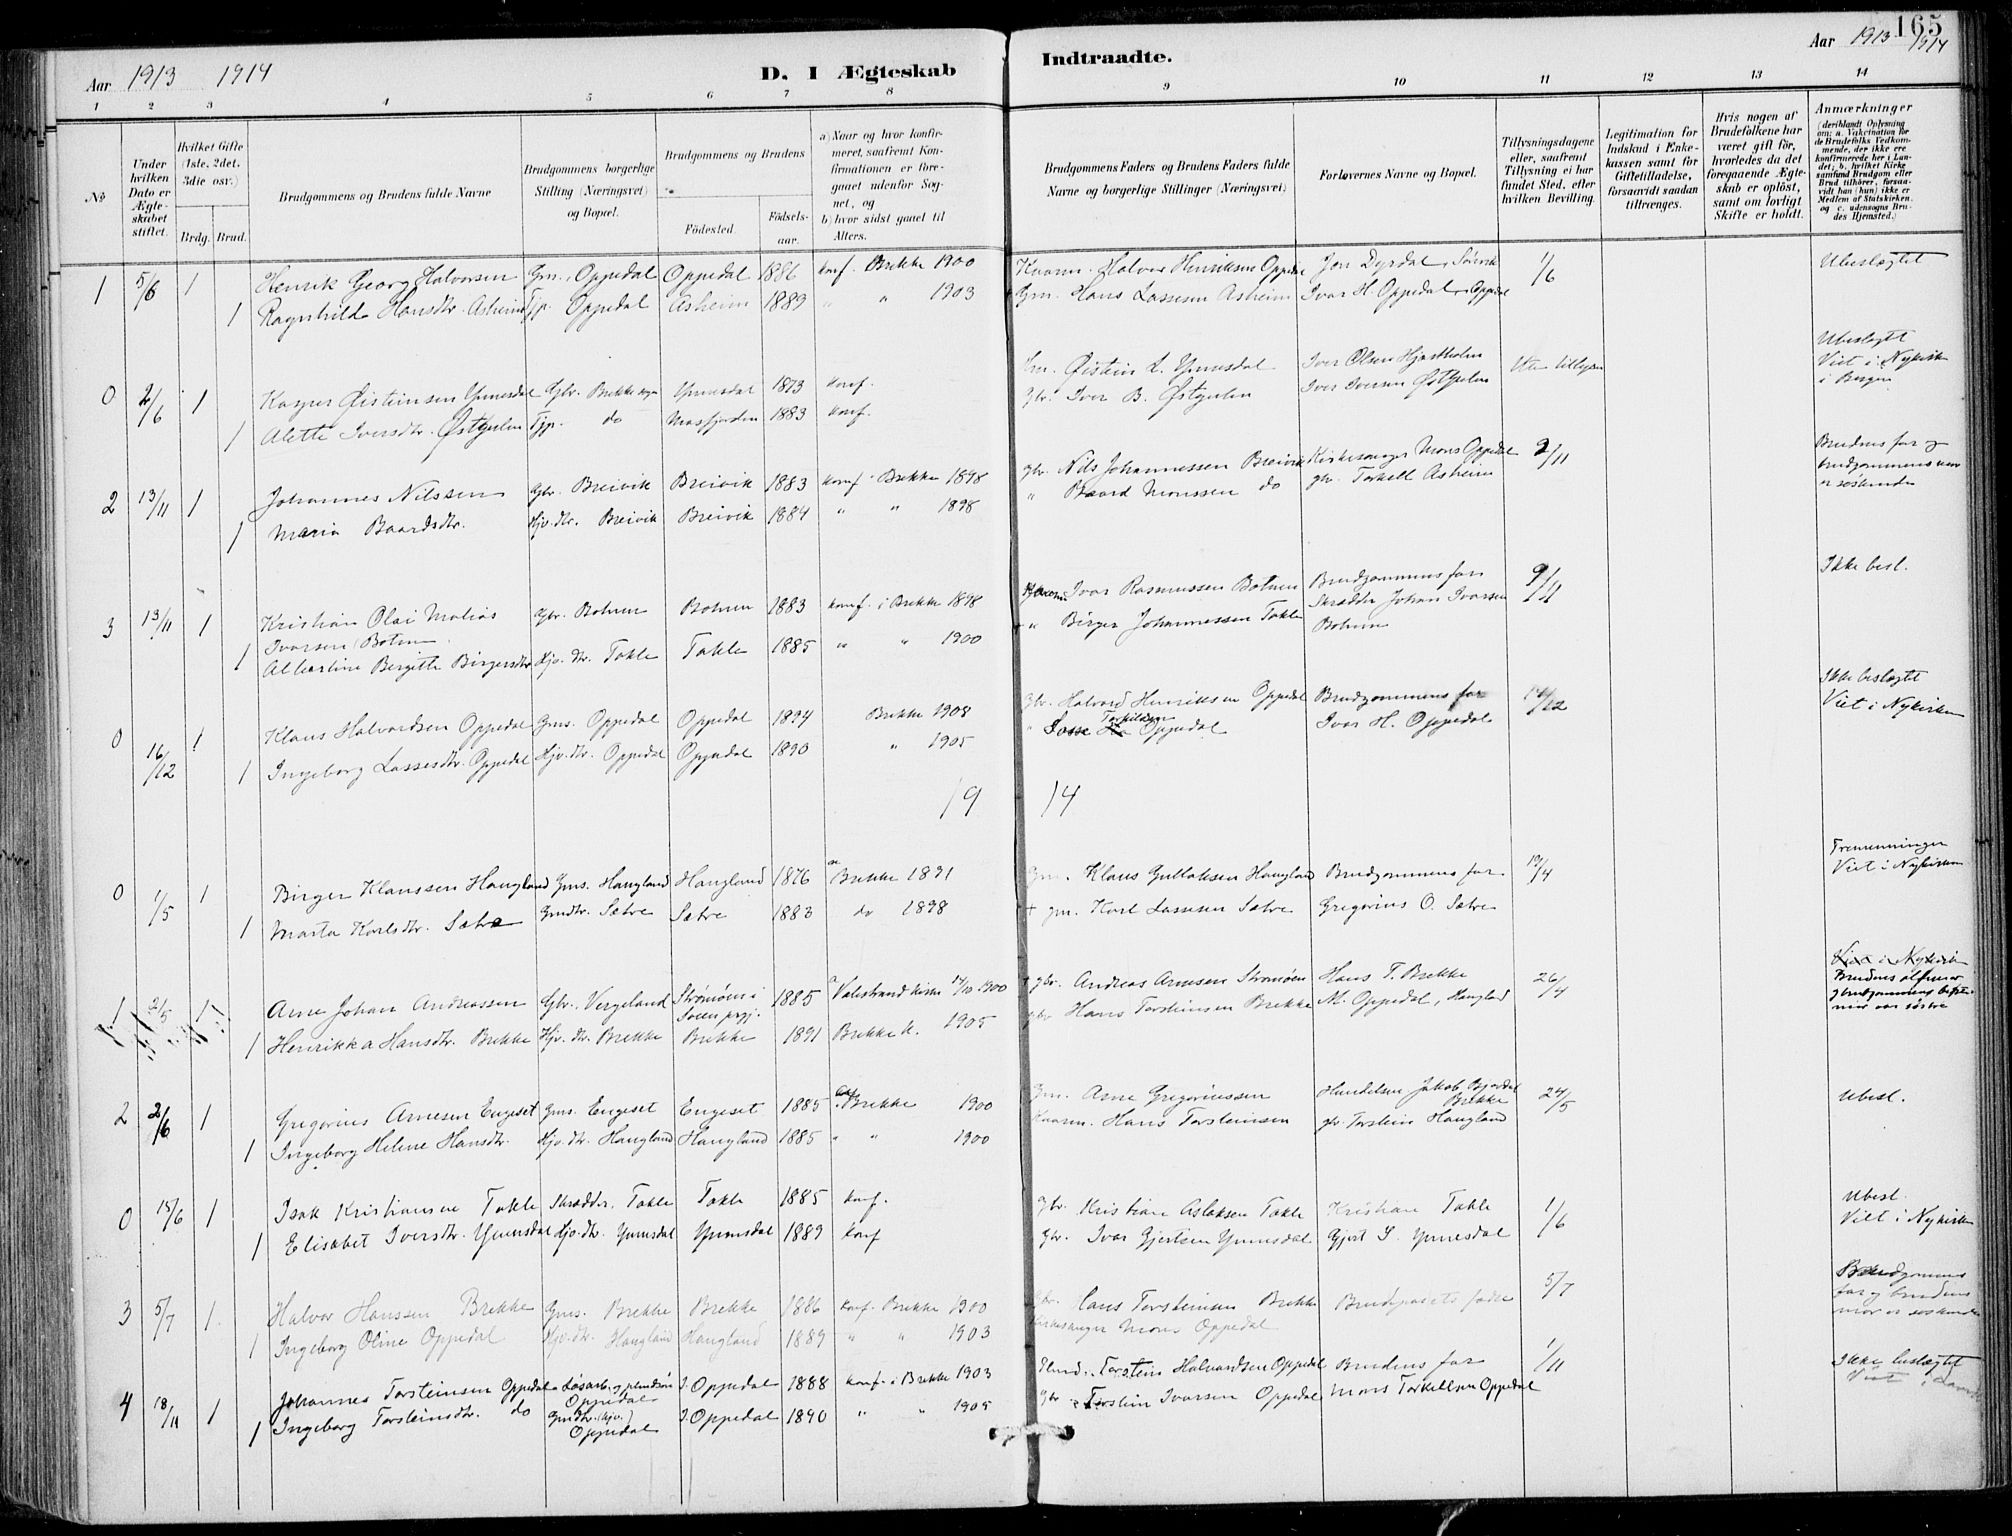 165
Aar 1913 1914
D. I Ægteskab
Indtraadte.
Aar 1913 1914
1 2 3 4 5 6 7 8 9 10 11 12 13 14
No
Under hvilken Dato er Ægteskabet stiftet.
Hvilket Gifte (1ste, 2det, 3die osv.)
Brdg. Brud.
Brudgommens og Brudens fulde Navne
Brudgommens borgerlige Stilling (Næringsvei) og Bopæl.
Brudgommens og Brudens
Födested.
Födselsaar.
a) Naar og hvor konfirmeret, saafremt Konfirmationen er foregaaet udenfor Sognet, og
b) hvor sidst gaaet til Alters.
Brudgommens Faders og Brudens Faders fulde Navne og borgerlige Stillinger (Næringsvei)
Forlovernes Navne og Bopæl.
Tillysningsdagene eller, saafremt Tillysning ei har fundet Sted, efter hvilken Bevilling.
Legitimation for Indskud i Enkekassen samt for Giftetilladelse, forsaavidt saadan tiltrænges.
Hvis nogen af Brudefolkene har været gift för, hvorledes da det foregaaende Ægteskab er oplöst, samt om lovligt Skifte er holdt.
Anmærkninger (deriblandt Oplysning om: a. Vakcination for de Brudefolks Vedkommende, der ikke ere konfirmerede her i Landet; b. hvilket Kirkesamfund Brudgom eller Brud tilhörer, forsaavidt han (hun) ikke er Medlem af Statskirken, og c. udensogns Brudes Hjemsted.)
1 5/6 1 Henrik Georg Halvorsen Gm. Oppedal Oppedal 1886 konf. Brekke 1900 Kaarm. Halvor Henriksen Oppedal Jon Dyrdal, Sörvik 1/6 Ubeslægtet
1 Ragnhild Hansdtr. Asheim Tjp. Oppedal Asheim 1889 " " 1903 Gm. Hans Lassesen Asheim Ivar H. Oppedal, Oppedal
0 2/6 1 Kasper Øisteinsen Ynnesdal Gbr. Brekke Ynnesdal 1873 konf. Øistein Ynnesdal Iver Olsen Hjartholm Ubeslægt Viet i Nykirken i Bergen
1 Alette Iversdtr. Østgulen Tjp. do Masfjorden 1883 konf. Gbr. Iver B. Østgulen Iver Iversen Østgulen
2 13/11 1 Johannes Nilssen Gbr. Breivik Breivik 1883 konf. i Brekke 1898 gbr. Nils Johannessen Breivik Kirkesanger Mons Oppedal 2/11 Brudens far og brudgommens mor er søskende
1 Maria Baardsdtr. Hjv. dtr. Breivik Breivik 1884 " " 1898 " Baard Monssen do gbr. Torkell Asheim
3 13/11 1 Kristian Olai Matias Ivarsen Botnen Gbr. Botnen Botnen 1883 konf. i Brekke 1898 Ivar Rasmussen Botnen Brudgommens far 9/11 Ikke besl.
1 Albertine Bergitte Birgersdtr. Hjv. dtr. Takle Takle 1885 " " 1900 " Birger Johannessen Takle Skrædder Johan Ivarsen Botnen
0 16/12 1 Klaus Halvardsen Oppedal Gms. Oppedal Oppedal 1894 Brekke 1908 Gbr. Halvard Henriksen Oppedal Brudgommens far 14/12 Ikke beslægtet Viet i Nykirken
1 Ingeborg Lassesdtr. Oppedal Hjv. dtr. Oppedal Oppedal 1890 " 1905 " Lasse Torkildsen Oppedal Ivar H. Oppedal
19 14
0 1/5 1 Birger Klaussen Haugland Gms. Haugland Haugland 1876 Brekke 1891 Gm. Klaus Gullaksen Haugland Brudgommens far 19/4 Tremenninger Viet i Nykirken
1 Marta Karlsdtr. Sætre Gmdtr. Sætre Sætre 1883 do 1898 + gm. Karl Lassesen Sætre Gregorius O. Sætre
1 2/5 1 Arne Johan Andreassen Gbr. Vergeland Strømøen i 1885 Valestrand kirke 14/10 1900 + gbr. Andreas Arnesen Strømøen Hans T. Brekke 26/4 Viet i Nykirken
1 Henrikka Hansdtr. Brekke Hjv. dtr. Brekke Brekke 1891 Brekke k. 1905 gbr. Hans Torsteinsen Brekke M. Oppedal, Haugland
2 2/6 1 Gregorius Arnesen Engeset Gms. Engeset Engeset 1885 Brekke 1900 Gm. Arne Gregoriussen Handelsm. Jakob Bjordal Brekke 24/5 Ubesl.
1 Ingeborg Helene Hansdtr. Hjv. dtr. Haugland Haugland 1885 " " 1900 Kaarm. Hans Torsteinsen gbr. Torstein Haugland
0 15/6 1 Isak Kristiansen Takle Skrædder, Takle Takle 1885 konf. Gbr. Kristian Aslaksen Takle Kristian Takle 1/6 Ubesl. Viet i Nykirken
1 Elisabet Iversdtr. Ynnesdal Hjv. dtr. Ynnesdal Ynnesdal 1889 konf Gbr. Ivar Gjertsen Ynnesdal Gjert I. Ynnesdal
3 5/7 1 Halvor Hanssen Brekke Gms. Brekke Brekke 1886 konf. Brekke 1900 Gbr. Hans Torsteinsen Brekke Brudeparets fædre 5/7 Brudgommens far og brudens mor er søskende
1 Ingeborg Oline Oppedal Hjv. dtr. Haugland Haugland 1889 " " 1903 Kirkesanger Mons Oppedal
4 18/11 1 Johannes Torsteinsen Oppedal Løsarb. Oppedal I. Oppedal 1888 konf. i Brekke 1903 Torstein Halvardsen Oppedal Brudens far 1/11 Ikke beslægtet Viet i
1 Ingeborg Torsteinsdtr. do Gmdtr. (hjv.) Oppedal I. Oppedal 1890 " " 1905 Gbr. Torstein Ivarsen Oppedal Mons Torkellsen Oppedal